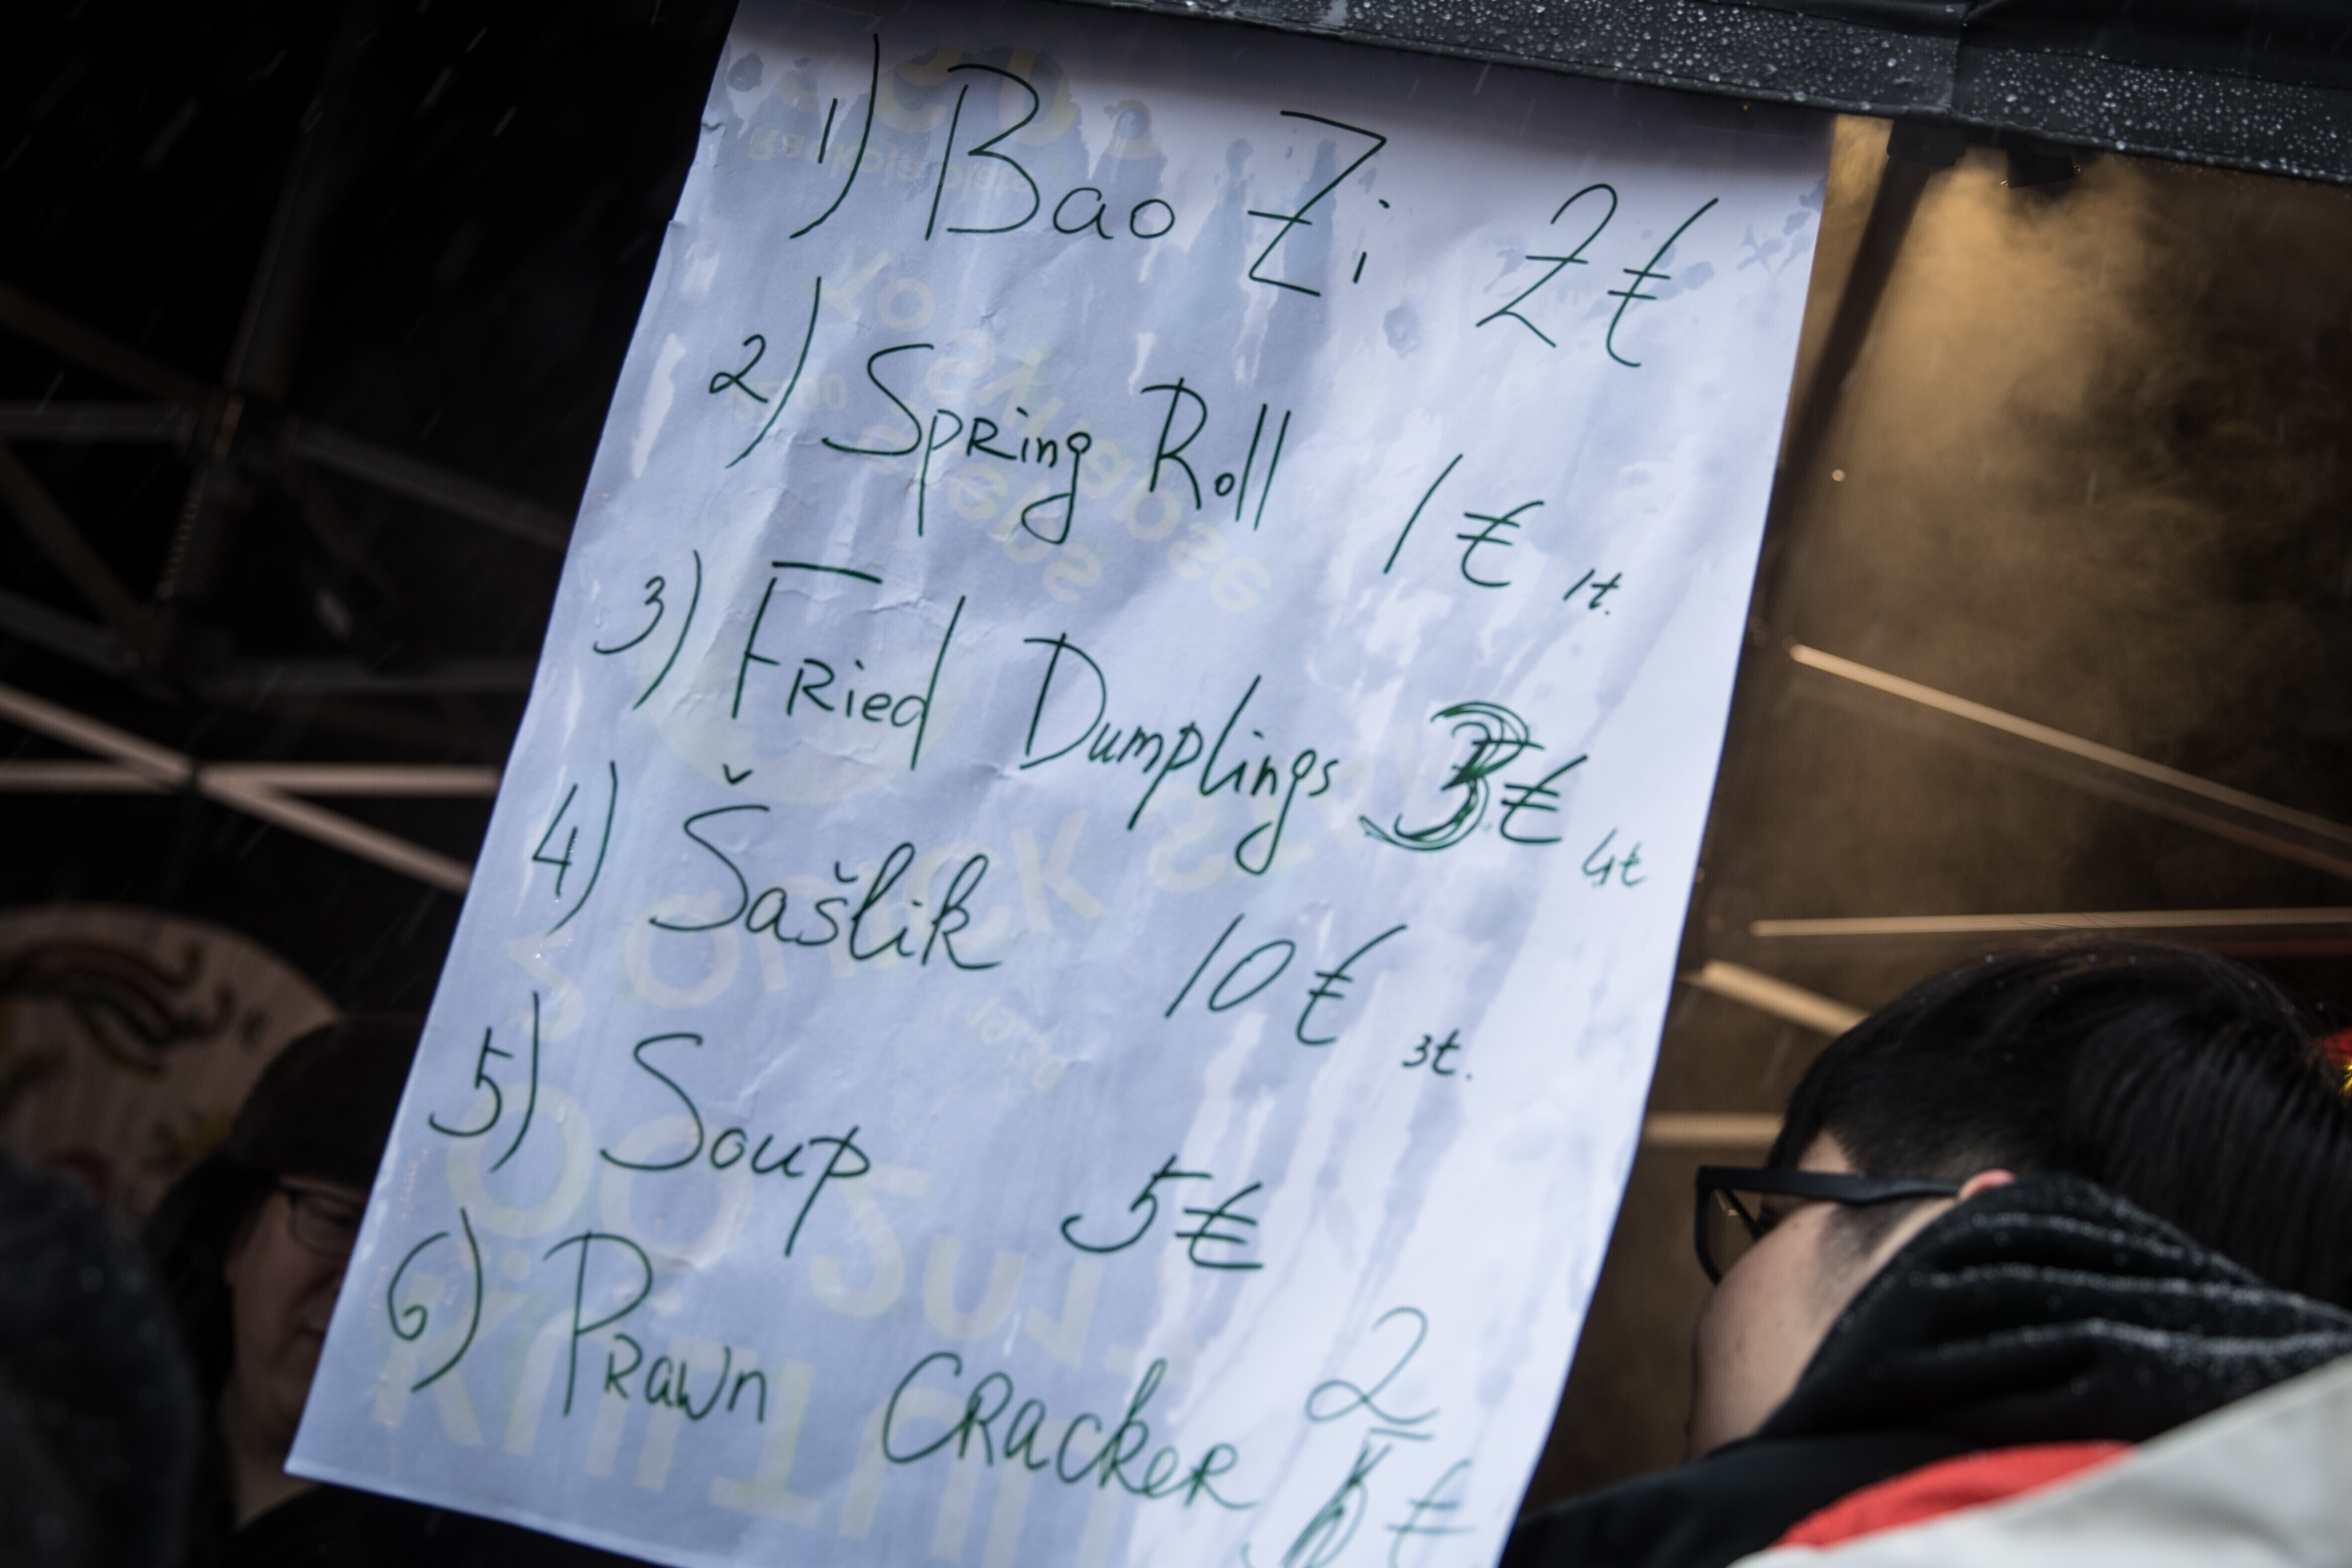 1) Bao Zi 2€
2) Spring Roll 1€ 1t.
3) Fried Dumplings 3€ 4t
4) Šašlik 10€ 3t.
5) Soup 5€
6) Prawn Cracker 2 €